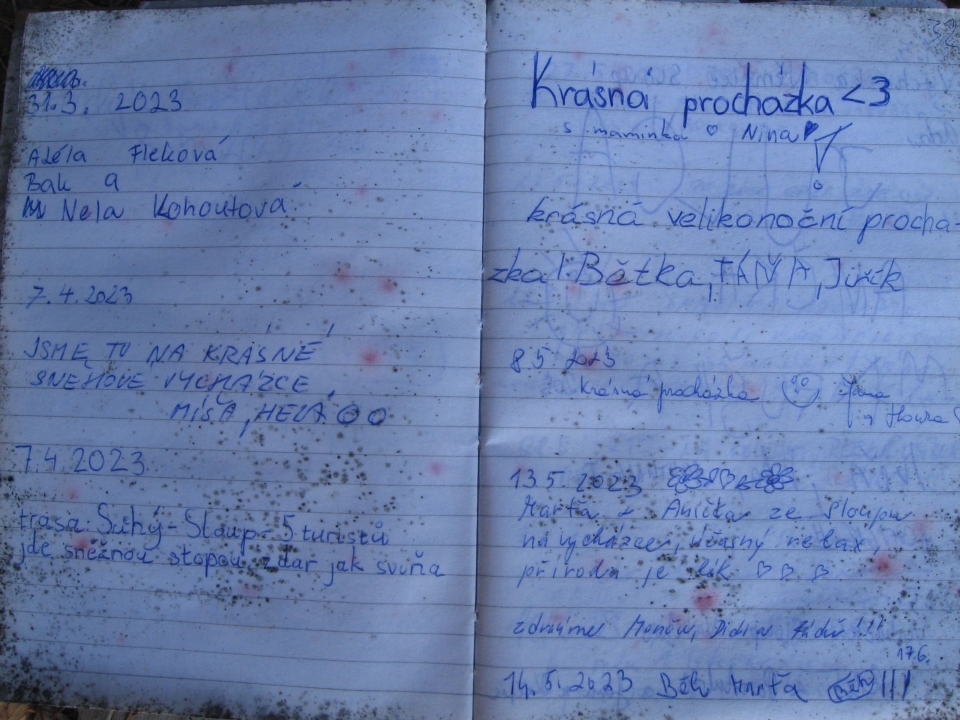 31.3. 2023
Adéla Fleková
Bak a
Nela Kohoutová
7.4.2023
JSME TU NA KRÁSNÉ
SNĚHOVÉ VYCHÁZCE
MÍŠA, HELA
7.4.2023
trasa: Suchý - Sloup - 5 turistů
jde sněžnou stopou zdar jak sviňa
Krásná procházka <3
s maminka ♡ Nina ♥
krásná velikonoční prochá-
zka! Bětka, TÁŇA, Jiřík
8.5 2023
Krásná procházka
13.5. 2023
Marťa + Anička ze Sloupu
na vycházce, úžasný relax,
příroda je lék ♡ ♡ ♡
zdravíme
17.6.
14.5.2023 Běh Marťa